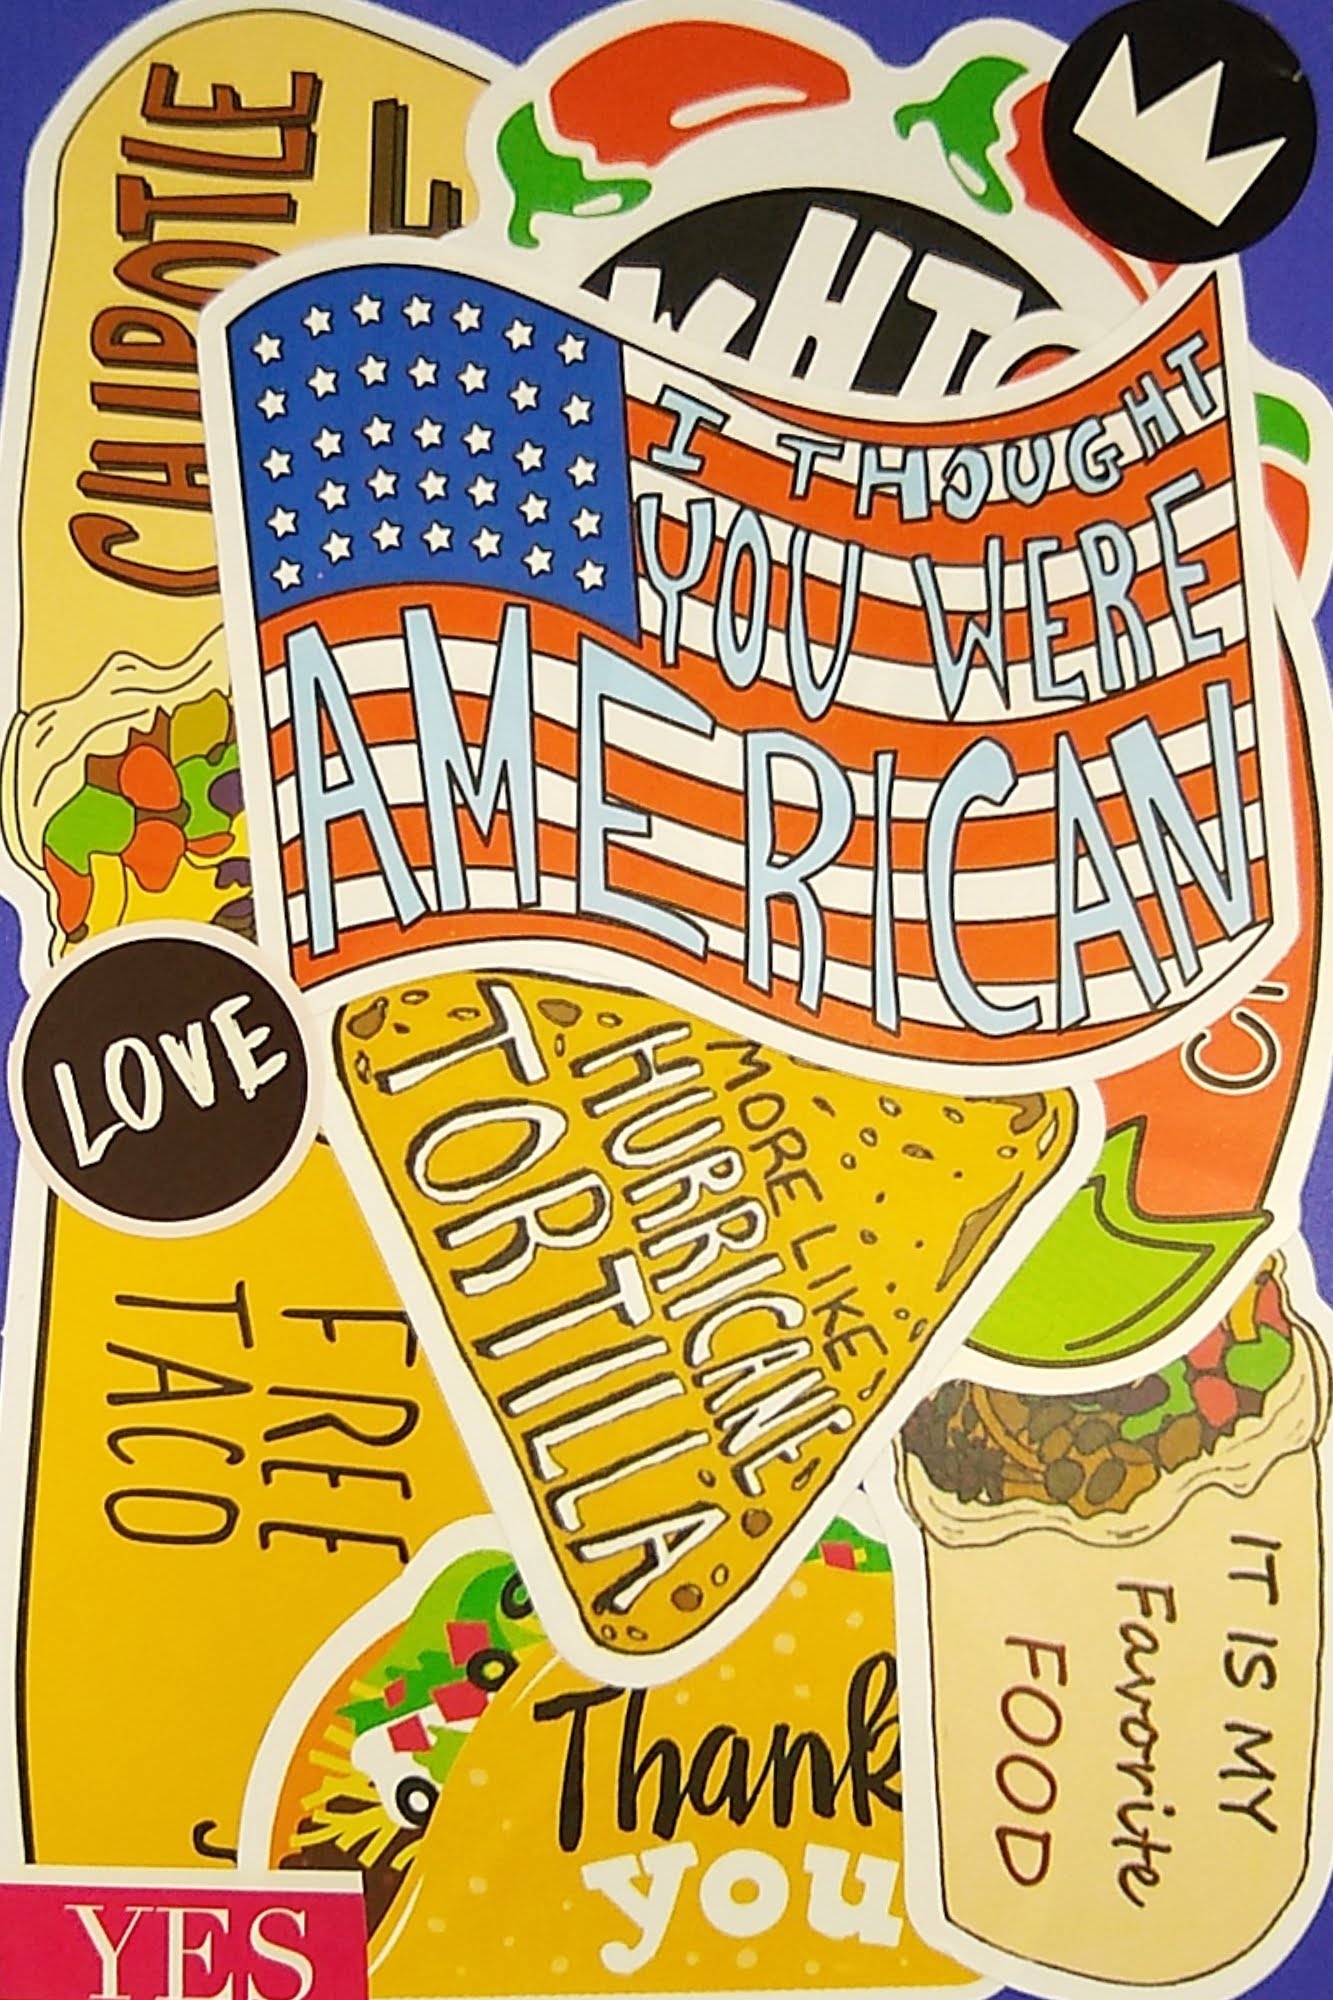 CHIPOTLE
I THOUGHT
YOU WERE
AMERICAN
LOVE
MORE LIKE,
HURRICANE
TORTILLA
FREE
TACO
IT IS MY
Favorite
FOOD
Thank
you
YES